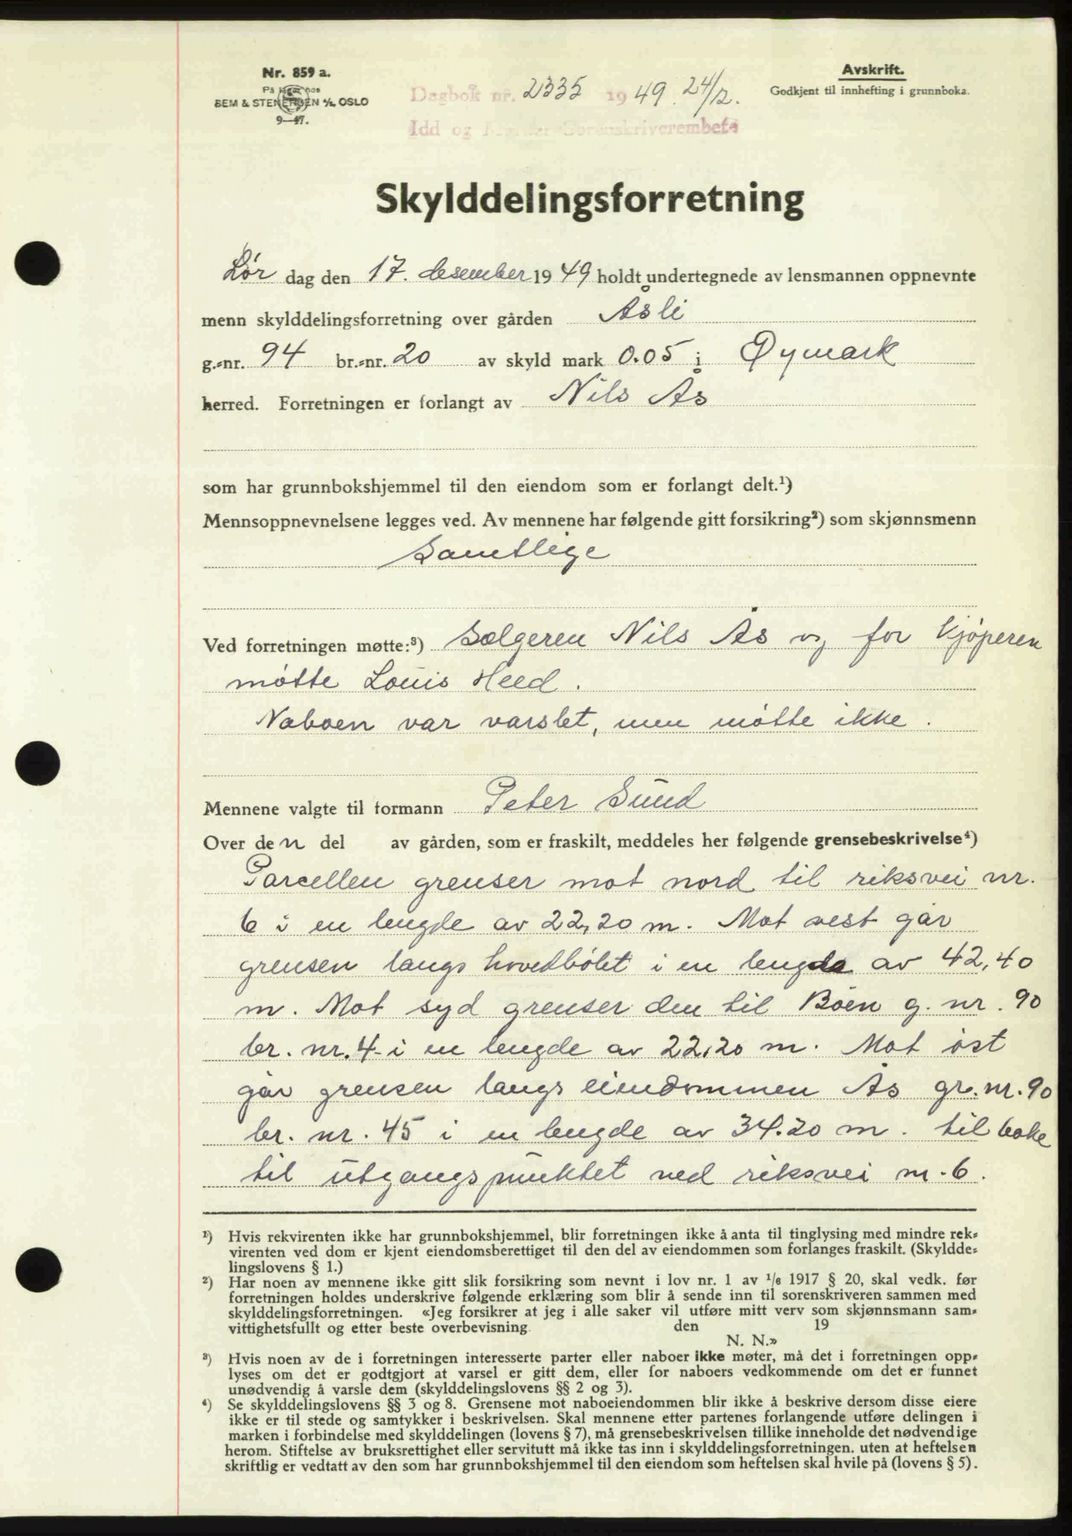 Nr. 859 a.
På lager hos
SEM & STENERSEN A/S, OSLO
9—47.
Dagbok nr. 2335 1949. 24/12.
Idd og Sorenskriverembete
Avskrift.
Godkjent til innhefting i grunnboka.
Skylddelingsforretning
Lør dag den 17. desember 1949 holdt undertegnede av lensmannen oppnevnte
menn skylddelingsforretning over gården Åsli
g.=nr. 94 br.=nr. 20 av skyld mark 0.05 i Øymark
herred. Forretningen er forlangt av Nils Ås
som har grunnbokshjemmel til den eiendom som er forlangt delt.¹)
Mennsoppnevnelsene legges ved. Av mennene har følgende gitt forsikring²) som skjønnsmenn
Samtlige
Ved forretningen møtte:³) Sælgeren Nils Ås og for kjøperen
møtte Louis Heed.
Naboen var varslet, men møtte ikke.
Mennene valgte til formann Peter Sund
Over den del av gården, som er fraskilt, meddeles her følgende grensebeskrivelse⁴)
Parcellen grenser mot nord til riksvei nr.
6 i en lengde av 22,20 m. Mot vest går
grensen langs hovedbølet i en lengde av 42,40
m. Mot syd grenser den til Bøen g. nr. 90
br. nr. 4 i en lengde av 22,20 m. Mot øst
går grensen langs eiendommen Ås gr. nr. 90
br. nr. 45 i en lengde av 34.20 m. tilbake
til utgangspunktet ved riksvei nr. 6.
¹) Hvis rekvirenten ikke har grunnbokshjemmel, blir forretningen ikke å anta til tinglysing med mindre rek=
virenten ved dom er kjent eiendomsberettiget til den del av eiendommen som forlanges fraskilt. (Skyldde=
lingslovens § 1.)
²) Har noen av mennene ikke gitt slik forsikring som nevnt i lov nr. 1 av 1/6 1917 § 20, skal vedk. før
forretningen holdes underskrive følgende erklæring som blir å sende inn til sorenskriveren sammen med
skylddelingsforretningen. «Jeg forsikrer at jeg i alle saker vil utføre mitt verv som skjønnsmann sam=
vittighetsfullt og etter beste overbevisning den 19
N. N.»
³) Hvis noen av de i forretningen interesserte parter eller naboer ikke møter, må det i forretningen opp=
lyses om det er godtgjort at varsel er gitt dem, eller for naboers vedkommende om det er funnet
unødvendig å varsle dem (skylddelingslovens §§ 2 og 3).
⁴) Se skylddelingslovens §§ 3 og 8. Grensene mot naboeiendommen blir ikke å beskrive dersom disse eiere
ikke er til stede og samtykker i beskrivelsen. Skal mennene etter partenes forlangende utføre delingen i
marken i forbindelse med skylddelingen (lovens § 7), må grensebeskrivelsen tillike inneholde det nødvendige
herom. Stiftelse av bruksrettighet eller servitutt må ikke tas inn i skylddelingsforretningen. uten at heftelsen
skriftlig er vedtatt av den som har grunnbokshjemmel til den eiendom som heftelsen skal hvile på (lovens § 5).